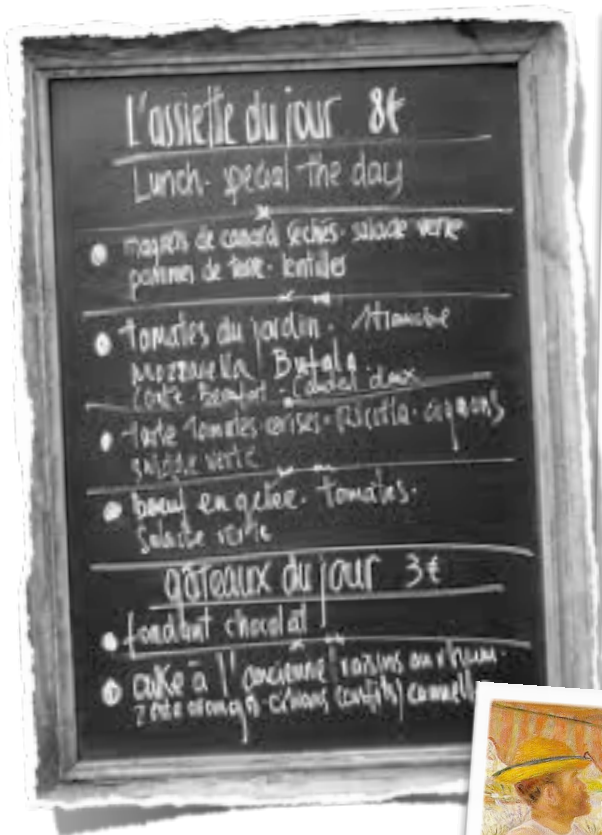 L'assiette du jour 8€
Lunch. special the day
magrets de canard séchés. salade verte
pommes de terre. lentilles
tomates du jardin.
Mozzarella Bufala.
Comté. Beaufort.
tarte tomates cerises. Ricotta. oignons
salade verte
boeuf en gelée. tomates.
Salade verte
gâteaux du jour 3€
fondant chocolat
cake à l'ancienne raisins au rhum.
zeste oranges citrons (confits)